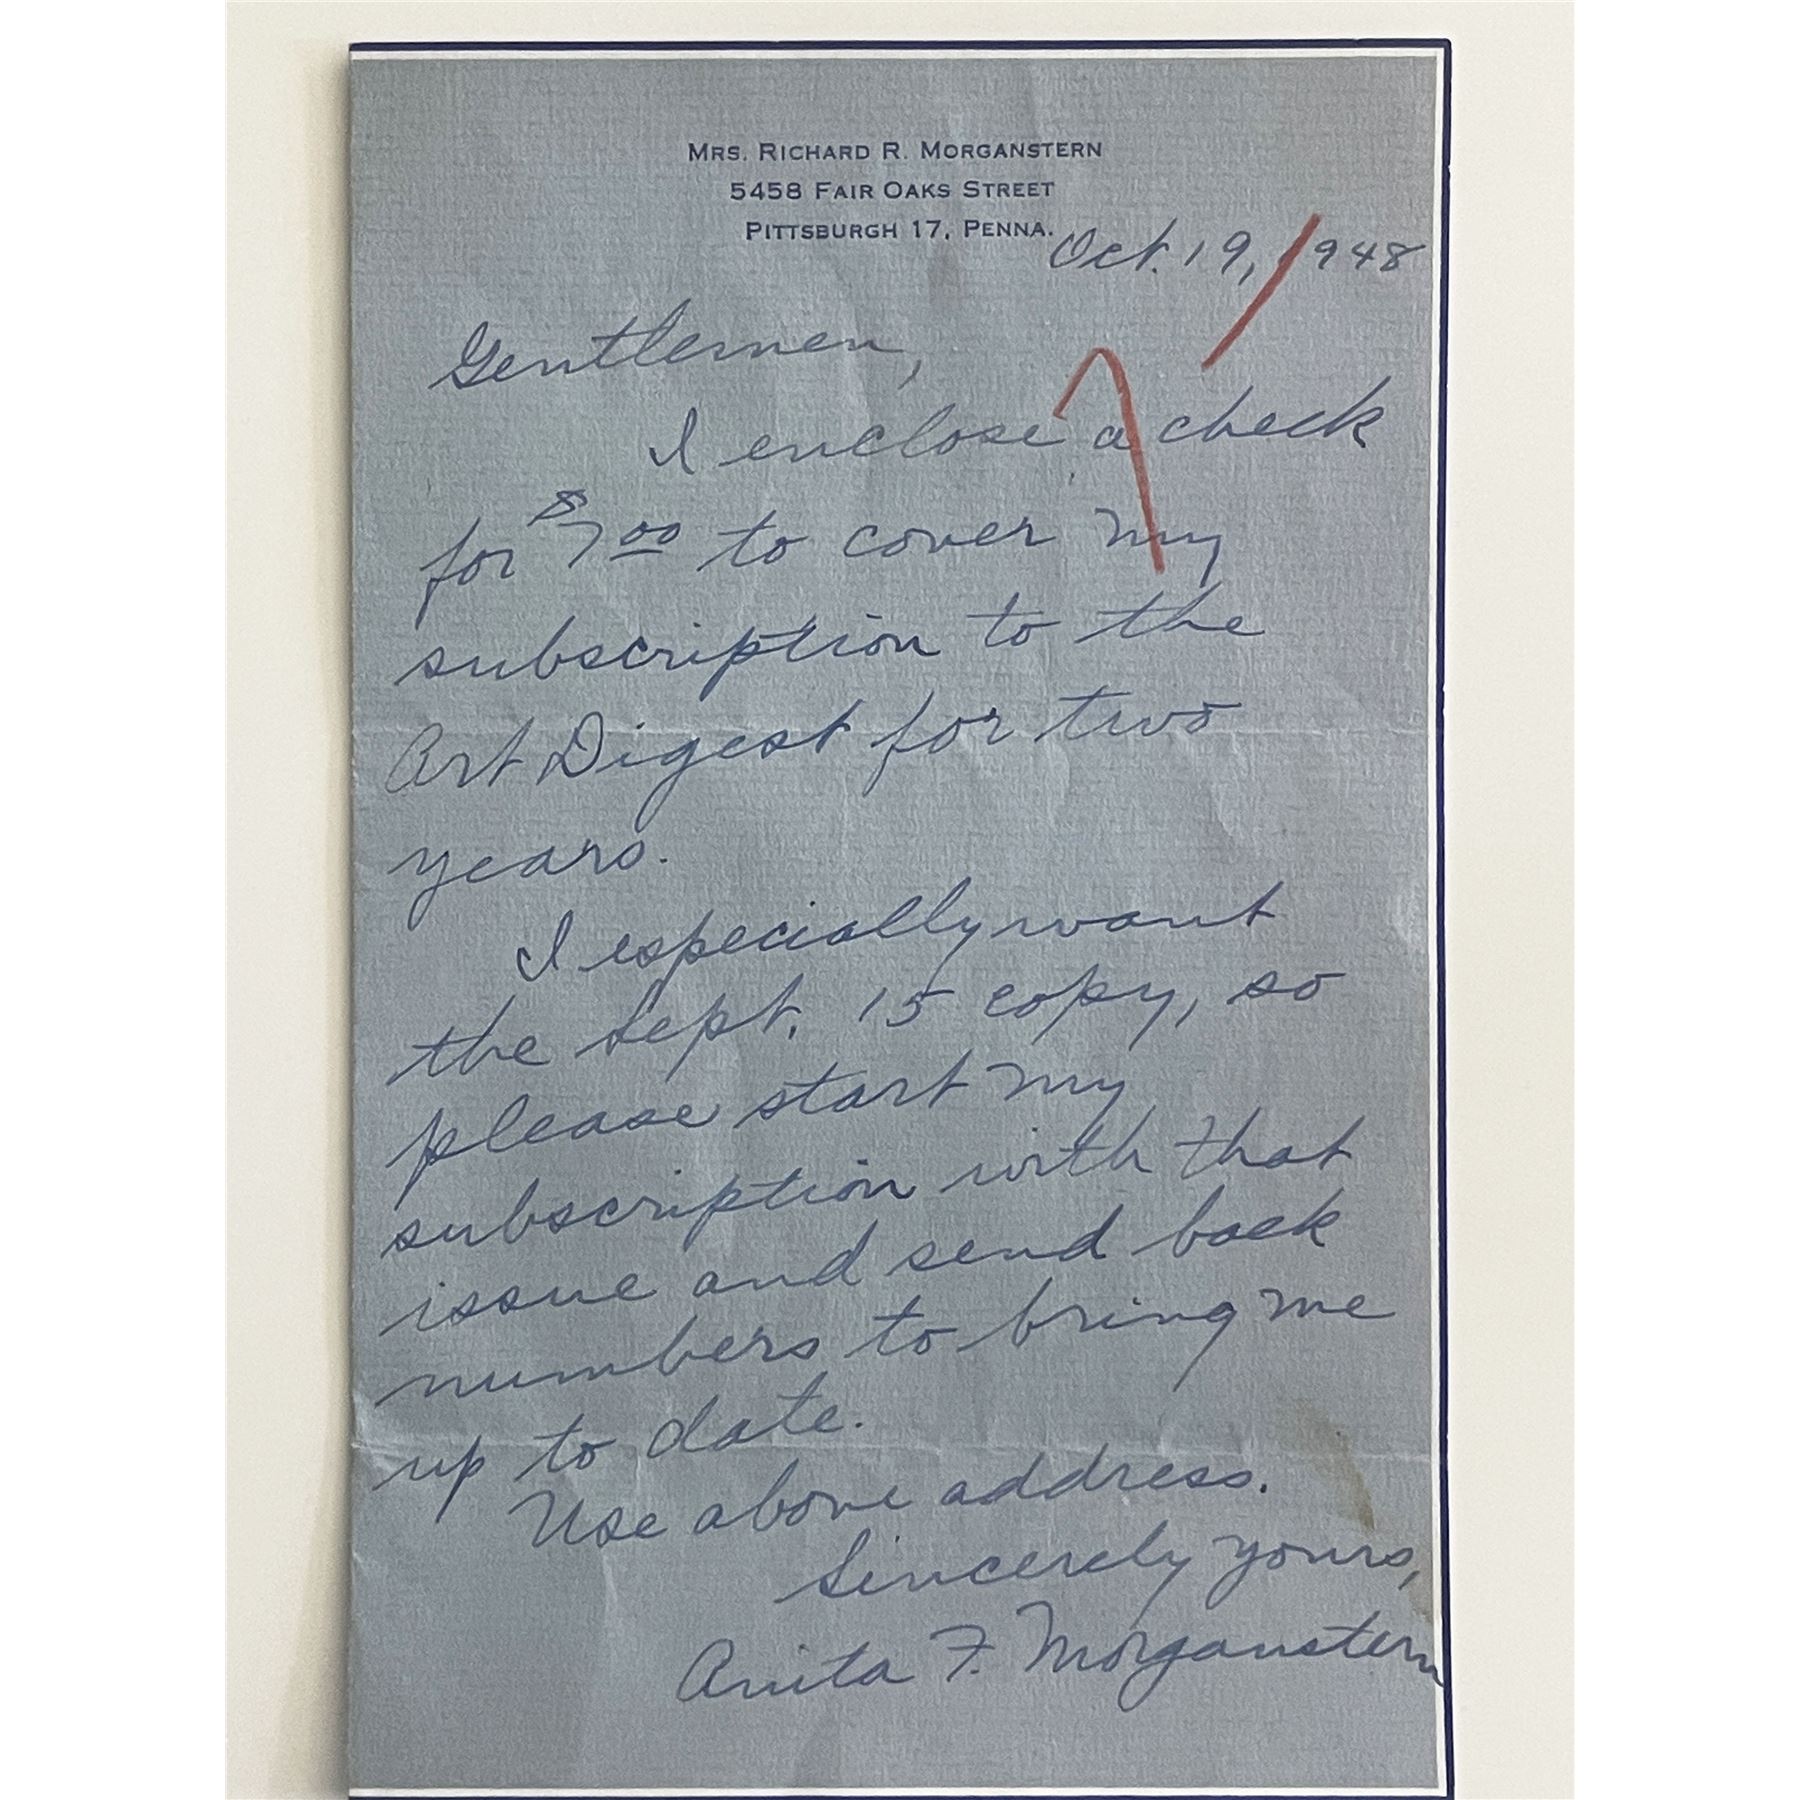 MRS. RICHARD R. MORGANSTERN
5458 FAIR OAKS STREET
PITTSBURGH 17, PENNA.
Oct. 19, 1948
Gentlemen,
I enclose a check
for $7.00 to cover my
subscription to the
Art Digest for two
years.
I especially want
the Sept. 15 copy, so
please start my
subscription with that
issue and send back
numbers to bring me
up to date.
Use above address.
Sincerely yours,
Anita F. Morganstern